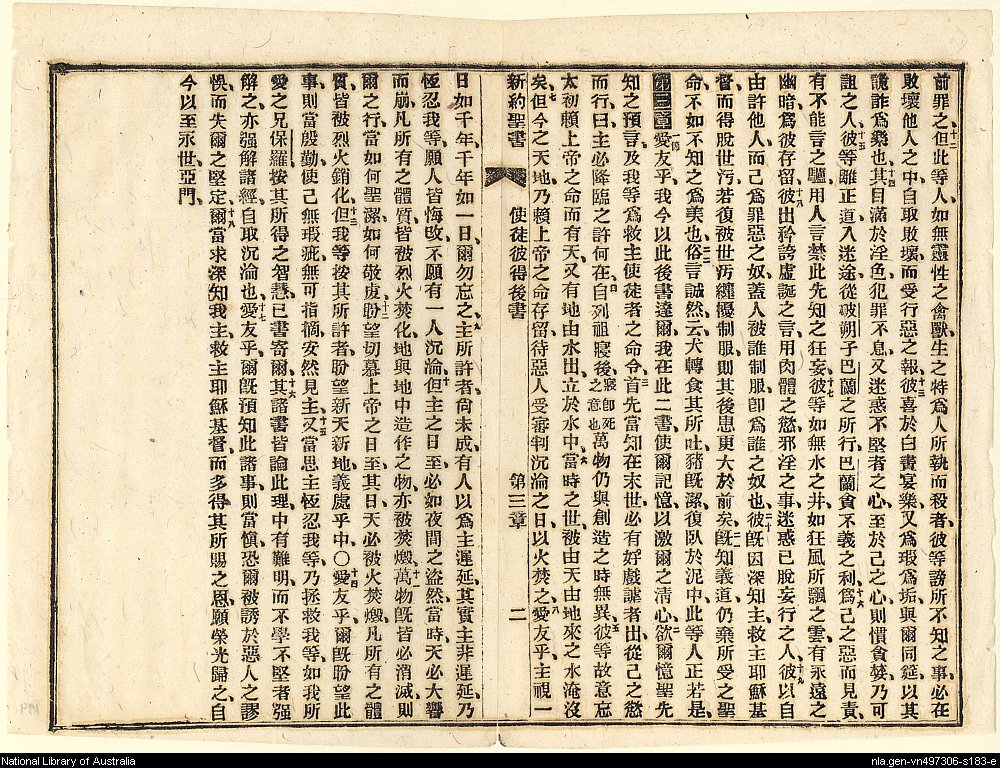 前罪之、但十二此等人如無靈性之禽獸、生之特爲人所執而殺者、彼等謗所不知之事、必在
敗壞他人之中、自取敗壞、而受行惡之報、十三彼喜於白晝宴樂、又爲瑕爲垢、與爾同筵、以其
詭詐爲樂也、十四其目滿於淫色、犯罪不息、又迷惑不堅者之心、至於己之心、則慣貪婪、乃可
詛之人、十五彼等離正道入迷途、從破朔子巴蘭之所行、巴蘭貪不義之利、十六爲己之惡而見責、
有不能言之驢、用人言禁此先知之狂妄、十七彼等如無水之井、如狂風所飄之雲、有永遠之
幽暗、爲彼存留、十八彼出矜誇虛誕之言、用肉體之慾邪淫之事、迷惑已脫妄行之人、十九彼以自
由許他人、而己爲罪惡之奴、蓋人被誰制服、卽爲誰之奴也、二十彼旣因深知主救主耶穌基
督、而得脫世汚、若復被世汚纏擾制服、則其後患更大於前矣、二一旣知義道、仍棄所受之聖
命、不如不知之爲美也、二二俗言誠然、云、犬轉食其所吐、豬旣潔、復臥於泥中、此等人正若是、
第三章 一愛友乎、我今以此後書達爾、我在此二書使爾記憶、以激爾之淸心、二欲爾憶聖先
知之預言、及我等爲救主使徒者之命令、三首先當知在末世必有好戲謔者出、從己之慾
而行、四曰、主必降臨之許何在、自列祖寢後、寢卽死之意也萬物仍與創造之時無異、五彼等故意忘
太初賴上帝之命而有天、又有地由水出、立於水中、六當時之世、被由天由地來之水淹沒
矣、七但今之天地、乃賴上帝之命存留、待惡人受審判沉淪之日、以火焚之、八愛友乎、主視一
新約聖書 使徒彼得後書 第三章 二
日如千年、千年如一日、爾勿忘之、九主所許者、尙未成、有人以爲主遲延、其實主非遲延、乃
恆忍我等、願人皆悔改、不願有一人沉淪、十但主之日至、必如夜間之盜然、當時天必大響
而崩、凡所有之體質、皆被烈火焚化、地與地中造作之物、亦被焚燬、十一萬物旣皆必消滅、則
爾之行、當如何聖潔、如何敬虔、十二盼望切慕上帝之日至、其日天必被火焚燬、凡所有之體
質、皆被烈火銷化、十三但我等按其所許者、盼望新天新地、義處乎中、〇十四愛友乎、爾旣盼望此
事、則當殷勤、使己無瑕疵無可指摘、安然見主、十五又當思主恆忍我等、乃拯救我等、如我所
愛之兄保羅、按其所得之智慧、已書寄爾、十六其諸書皆論此理、中有難明、而不學不堅者强
解之、亦强解諸經、自取沉淪也、十七愛友乎、爾旣預知此諸事、則當愼、恐爾被誘於惡人之謬
悞、而失爾之堅定、十八爾當求深知我主救主耶穌基督、而多得其所賜之恩、願榮光歸之、自
今以至永世、亞門、
National Library of Australia
nla.gen-vn497306-s183-e